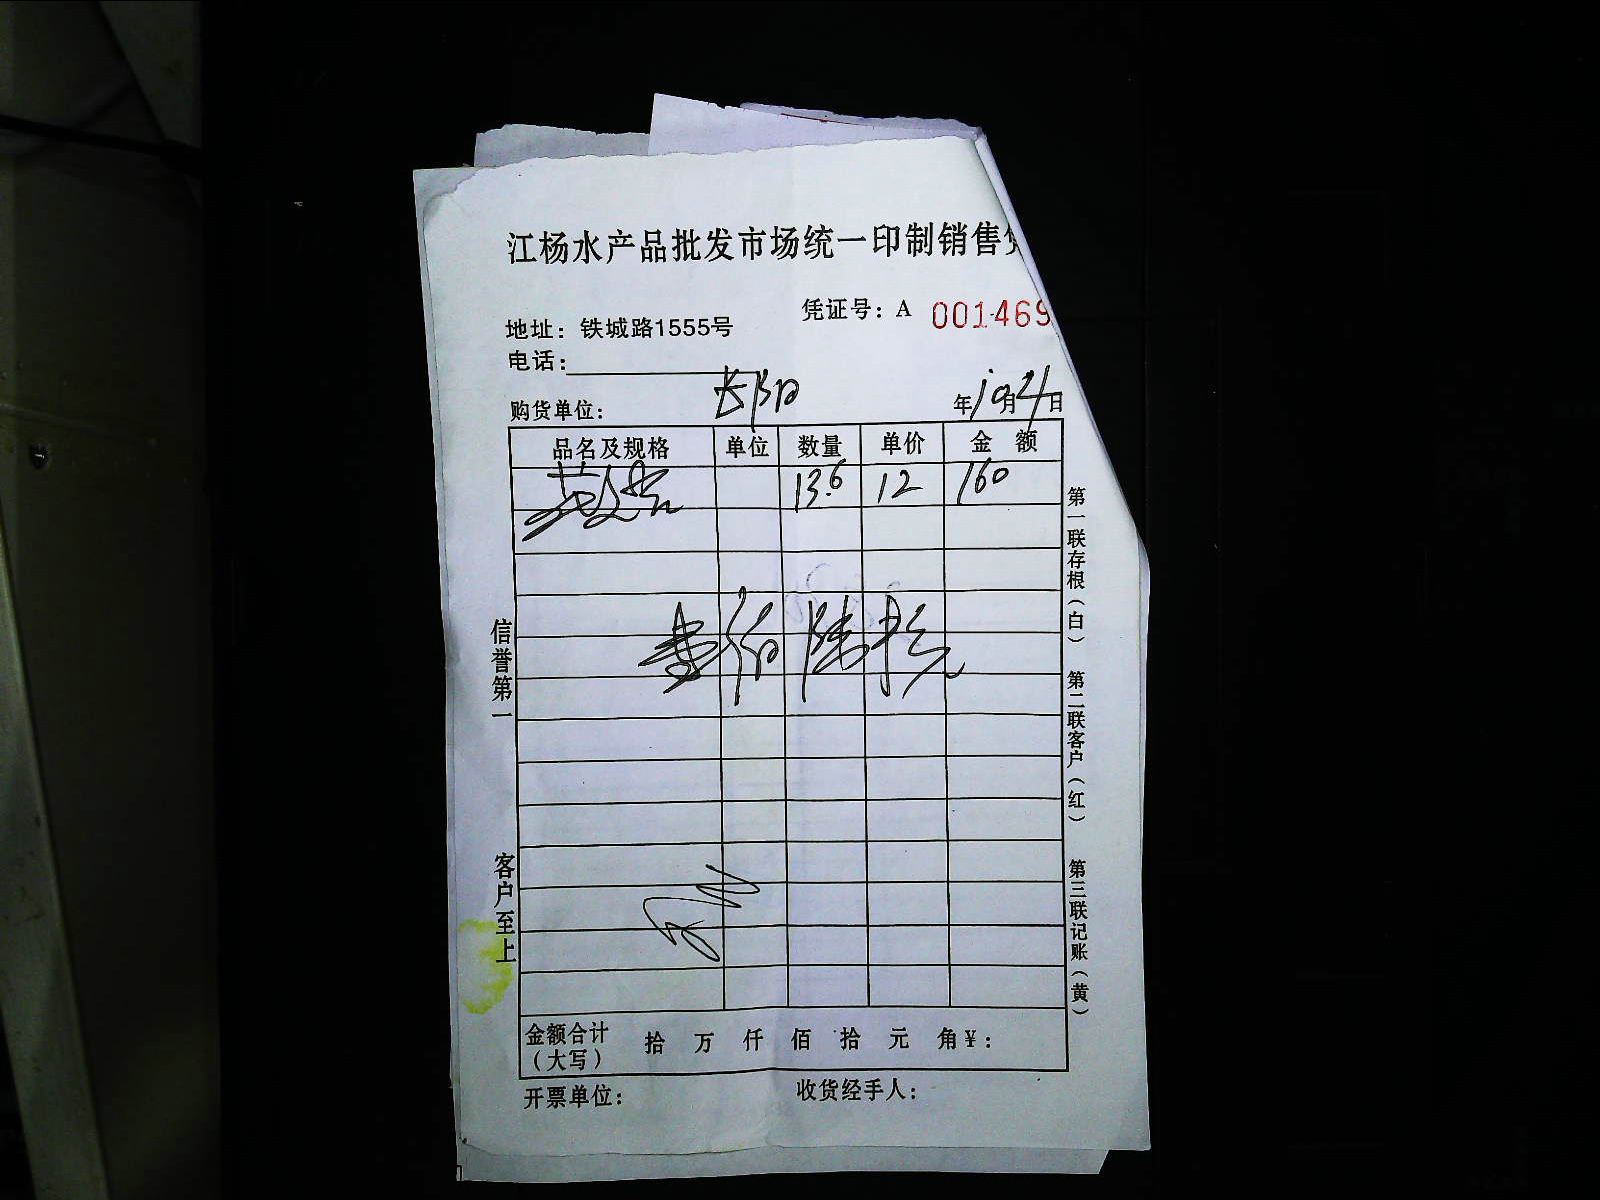 江杨水产品批发市场统一印制销售
凭证号：A 001469
地址：铁城路1555号
电话：
购货单位： 长阳 年10月21日
品名及规格 单位 数量 单价 金额
13.6 12 160
壹佰陆拾元
信誉第一
客户至上
第一联存根（白）
第二联客户（红）
第三联记账（黄）
金额合计（大写） 拾 万 仟 佰 拾 元 角 ¥：
开票单位： 收货经手人：